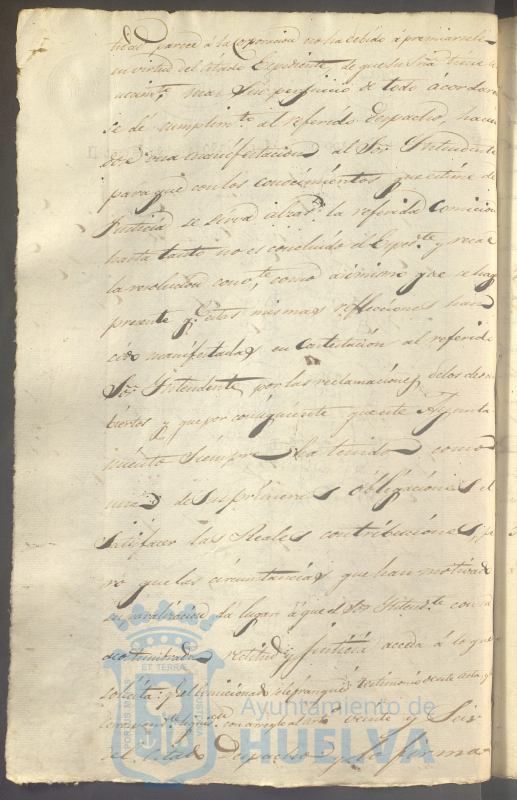 parece á la Corporacion no ha debido á premiarsele
en virtud del citado Expediente, de que su Sria tiene
mas sin perjuicio de todo acordaron
se dé cumplim.to al referido Despacho, hacien
dose una manifestacion al Sor. Yntendente
para que con los conocimientos que estime de
Justicia se sirva alzar la referida Comision
hasta tanto no es concluido el Exped.te y recae
la resolucion conv.te como asimismo que se haga
presente q.e estas mismas reflecciones han
sido manifestadas en contestacion al referido
Sor. Yntendente por las reclamaciones de los descu
biertos y que por consiguiente que este Ayunta
miento siempre ha tenido como
una de sus primeras obligaciones el
satisfacer las Reales contribuciones, pe
ro que las circunstancias que han motivado
su paralizacion da lugar á que el Sor. Yntend.te con su
acostumbrada rectitud y justicia acceda á lo que
solicita: y al comicionado se le franqueé testimonio de este acta y
con arreglo al arto. veinte y Seis
del citado Despacho y lo firma
ET TERRÆ
PORTUS MARIS
CUSTODIA
Ayuntamiento de
HUELVA